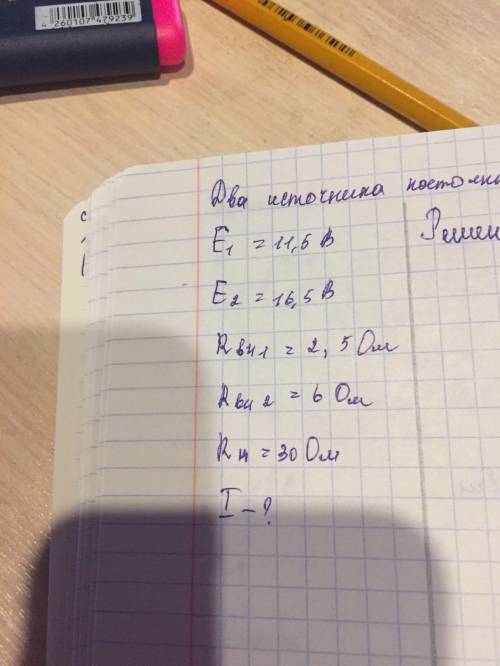 4 260107 479239
Два источника
E1 = 11,5 В
E2 = 16,5 В
Rвн1 = 2,5 Ом
Rвн2 = 6 Ом
Rн = 30 Ом
I - ?